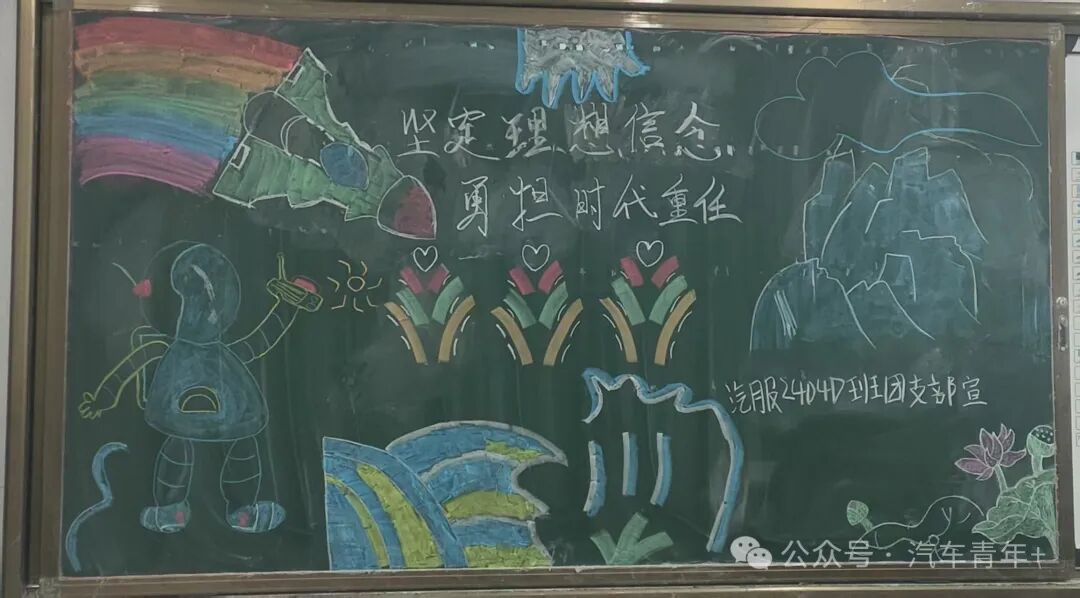 坚定理想信念
勇担时代重任
汽服2404D班团支部宣
公众号·汽车青年+